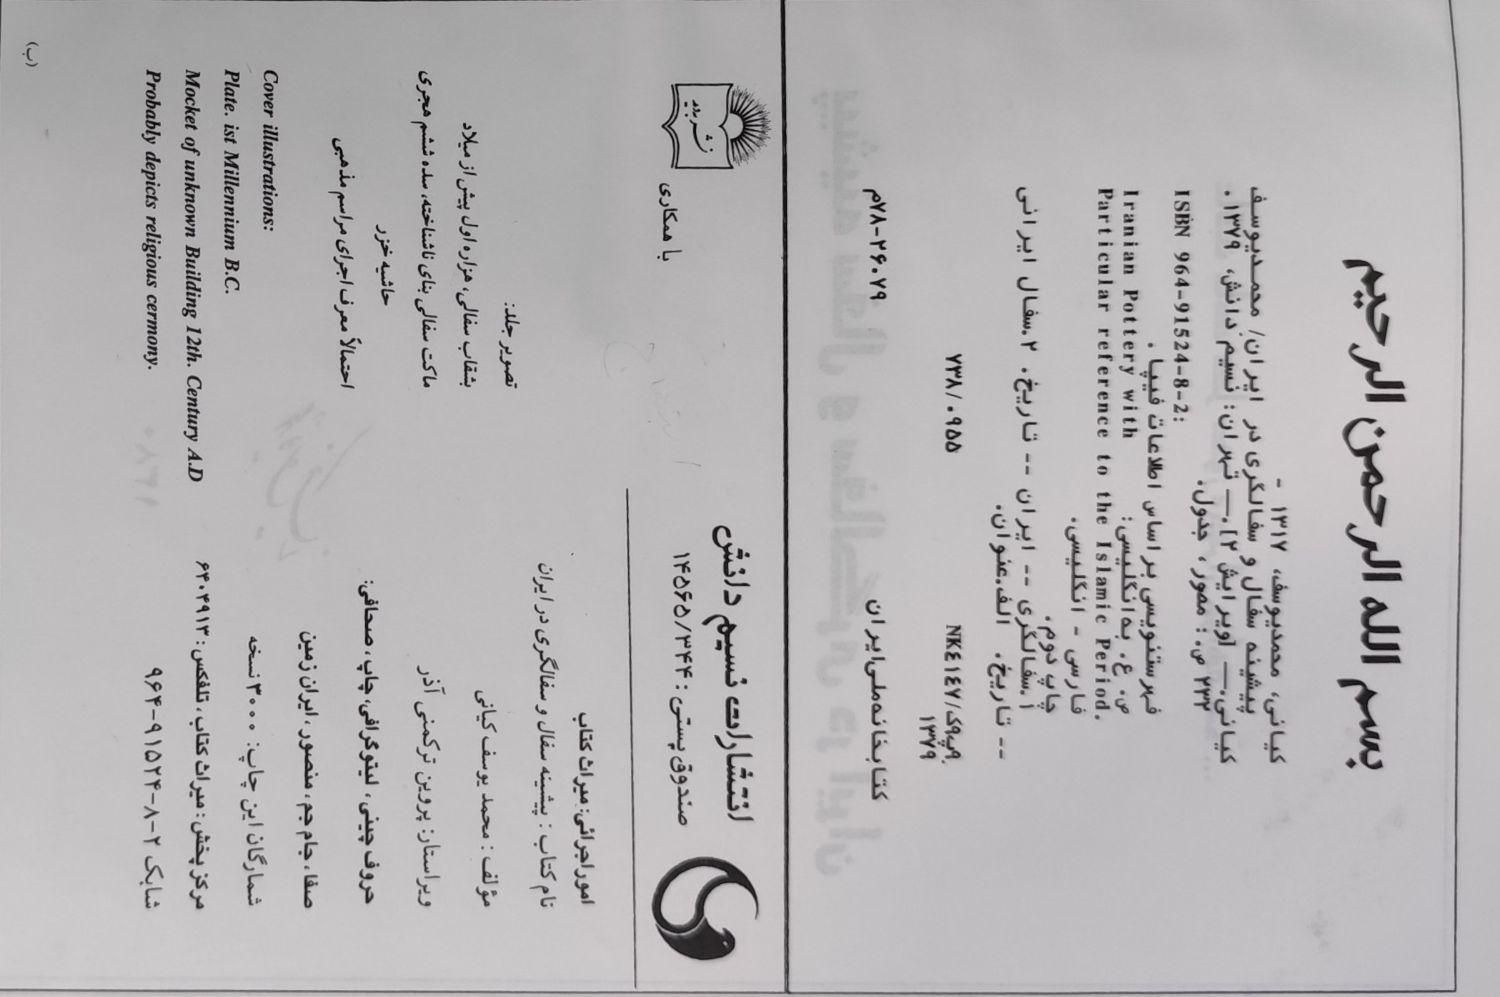 بسم الله الرحمن الرحیم
کیانی، محمدیوسف، ۱۳۱۷ -
پیشینه سفال و سفالگری در ایران/ محمدیوسف
کیانی.— [ویرایش ۲].— تهران: نسیم دانش، ۱۳۷۹.
۲۳۲ ص.: مصور، جدول.
ISBN 964-91524-8-2:
فهرستنویسی براساس اطلاعات فیپا.
ص. ع. به‌انگلیسی:
Iranian Pottery with
Particular reference to the Islamic Period.
فارسی - انگلیسی.
چاپ دوم.
۱.سفالگری -- ایران -- تاریخ. ۲.سفال ایرانی
-- تاریخ. الف.عنوان.
۷۳۸/۰۹۵۵
NK٤١٤٧/ک۹پ۹
۱۳۷۹
کتابخانه‌ملی‌ایران
۷۸-۲۶۰۷۹م
با همکاری
نشر پدید
انتشارات نسیم دانش
صندوق پستی: ۱۴۵۶۵/۳۴۴
امور اجرائی: میراث کتاب
نام کتاب: پیشینه سفال و سفالگری در ایران
مؤلف: محمد یوسف کیانی
ویراستار: پروین ترکمنی آذر
حروف چینی، لیتوگرافی، چاپ، صحافی:
صفا، جام جم، منصور، ایران زمین
شمارگان این چاپ: ۳۰۰۰ نسخه
مرکز پخش: میراث کتاب، تلفکس: ۶۴۰۴۹۱۳
شابک ۲-۸-۹۱۵۲۴-۹۶۴
تصویر جلد:
بشقاب سفالی، هزاره اول پیش از میلاد
ماکت سفالی بنای ناشناخته، سده ششم هجری
حاشیه خزر
احتمالاً معرف اجرای مراسم مذهبی
Cover illustrations:
Plate. ist Millennium B.C.
Mocket of unknown Building 12th. Century A.D
Probably depicts religious cermony.
(ب)